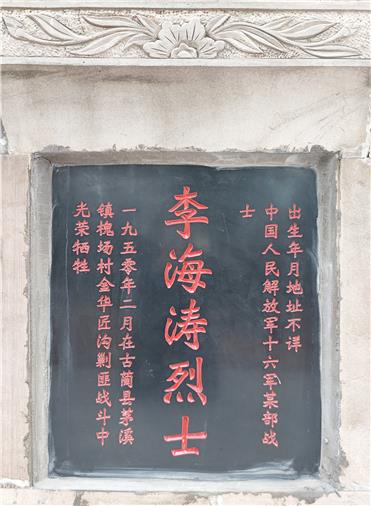 出生年月地址不详
中国人民解放军十六军某部战
士
李海涛烈士
一九五零年二月在古蔺县茅溪
镇槐场村金华匠沟剿匪战斗中
光荣牺牲